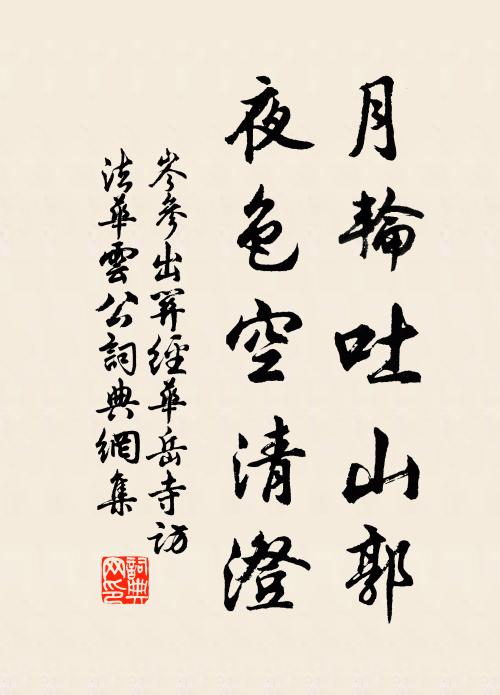 月輪吐山郭
夜色空清澄
岑參出關經華岳寺訪
法華雲公詞典網集
詞典
网印